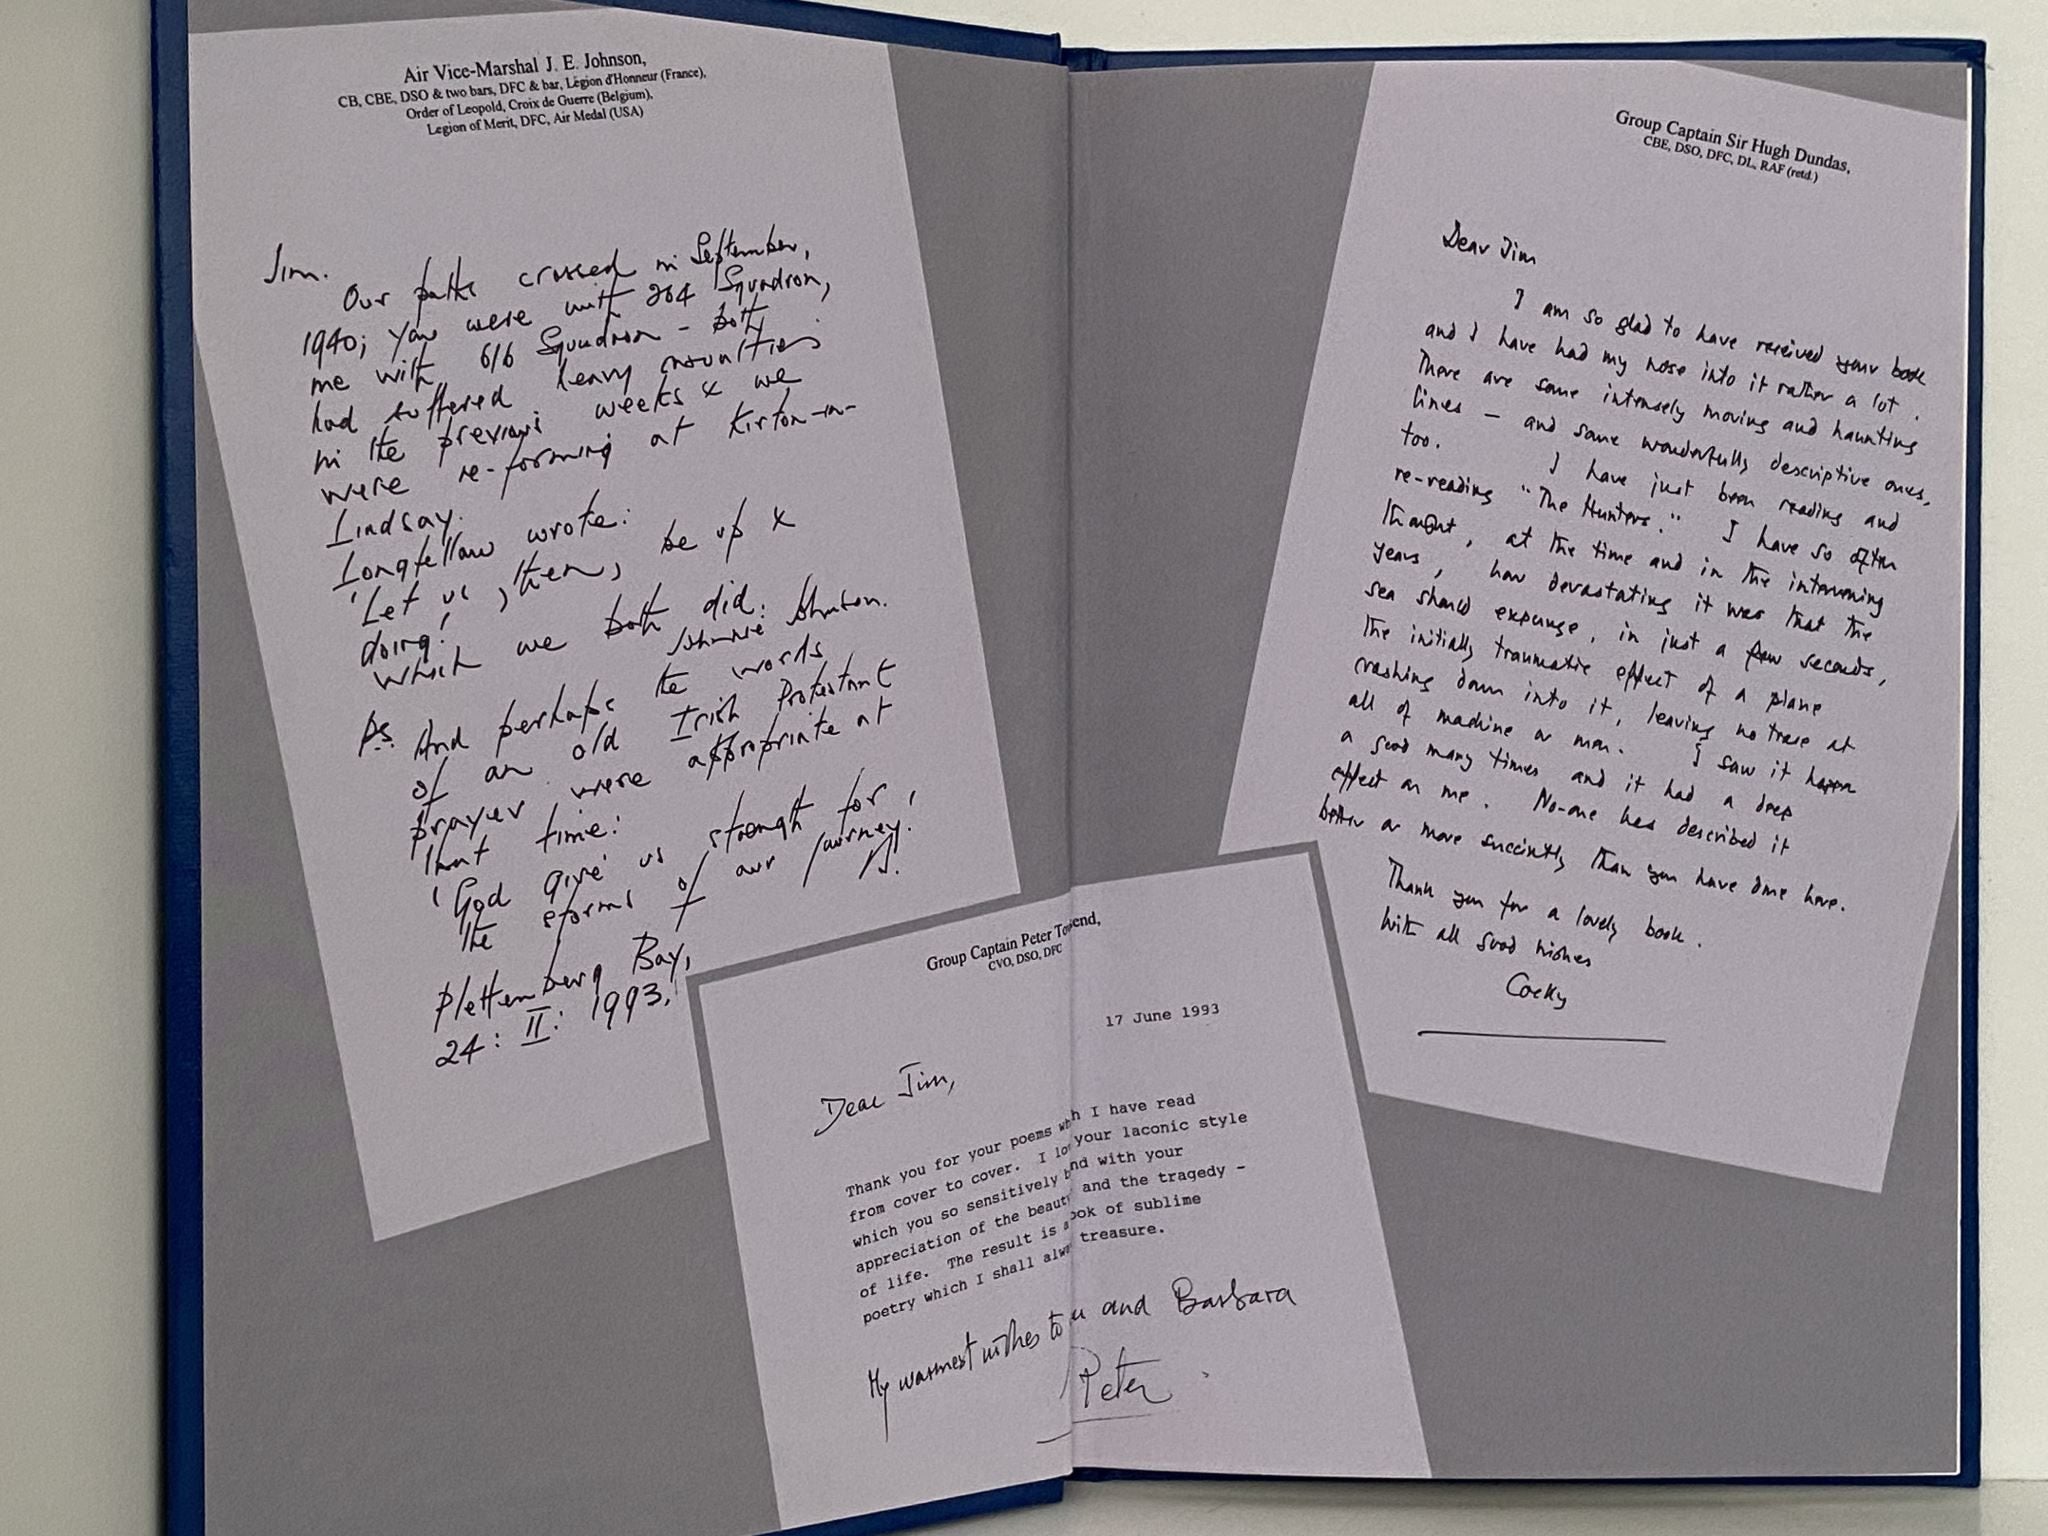 Air Vice-Marshal J. E. Johnson,
CB, CBE, DSO & two bars, DFC & bar, Légion d'Honneur (France),
Order of Leopold, Croix de Guerre (Belgium),
Legion of Merit, DFC, Air Medal (USA)
Jim.
Our paths crossed in September,
1940; you were with 264 Squadron,
me with 616 Squadron - both
had suffered heavy casualties
in the previous weeks & we
were re-forming at Kirton-in-
Lindsay.
Longfellow wrote:
'Let us, then, be up &
doing!'
Which we both did.
Johnnie Johnson.
Ps. And perhaps the words
of an old Irish Protestant
prayer were appropriate at
that time:
'God give us strength for
the storms of our journey.'
JJ.
Plettenberg Bay,
24: II: 1993.
Group Captain Peter To end,
CVO, DSO, DFC
17 June 1993
Dear Jim,
Thank you for your poems wh h I have read
from cover to cover. I lo your laconic style
which you so sensitively b nd with your
appreciation of the beaut and the tragedy -
of life. The result is a ook of sublime
poetry which I shall alwa treasure.
My warmest wishes to u and Barbara
Peter
Group Captain Sir Hugh Dundas,
CBE, DSO, DFC, DL, RAF (retd.)
Dear Jim
I am so glad to have received your book
and I have had my nose into it rather a lot.
There are some intensely moving and haunting
lines - and some wonderfully descriptive ones,
too. I have just been reading and
re-reading "The Hunters." I have so often
thought, at the time and in the intervening
years, how devastating it was that the
sea should expunge, in just a few seconds,
the initially traumatic effect of a plane
crashing down into it, leaving no trace at
all of machine or man. I saw it happen
a good many times and it had a deep
effect on me. No-one has described it
better or more succintly than you have done here.
Thank you for a lovely book.
With all good wishes
Cocky